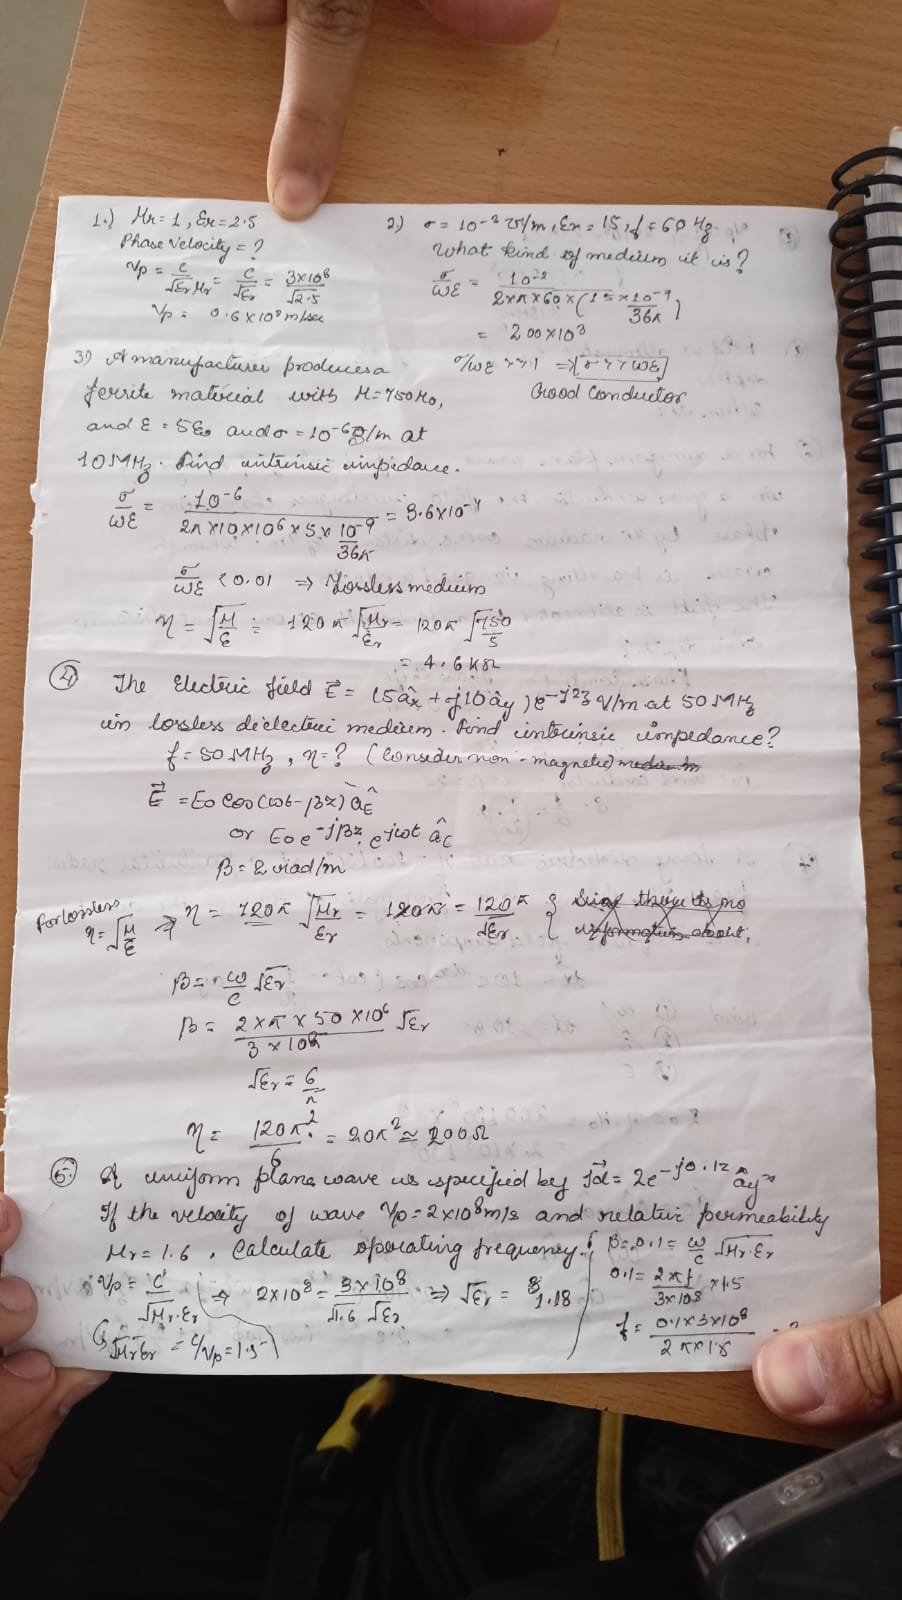 1.) Mr = 1, Er = 2.5
Phase velocity = ?
Vp = c/√ErMr = c/√Er = 3×10⁸/√2.5
Vp = 0.6×10⁸ m/sec
2) σ = 10⁻² ℧/m, Er = 15, f = 60 Hz
What kind of medium it is?
σ/ωε = 10⁻²/2×π×60×(15×10⁻⁹/36π)
= 200×10³
σ/ωε >>1 ⇒ [σ>>ωε]
Good conductor
3) A manufacturer produces a
ferrite material with μ = 750μ₀,
and ε = 5ε₀ and σ = 10⁻⁶ ℧/m at
10 MHz. Find intrinsic impedance.
σ/ωε = 10⁻⁶/2π×10×10⁶×5×10⁻⁹/36π = 3.6×10⁻⁴
σ/ωε < 0.01 ⇒ Lossless medium
η = √μ/ε = 120π √μr/εr = 120π √750/5
= 4.6 kΩ
④ The Electric field E⃗ = (5âx + j10ây)e^-j2z V/m at 50 MHz
in lossless dielectric medium. Find intrinsic impedance?
f = 50 MHz, η = ? (Consider non-magnetic)
E⃗ = E₀ cos(ωt-βz) âE
or E₀e^-jβz. e^jωt âE
β = 2 rad/m
For lossless η = √μ/ε ⇒ η = 120π √μr/εr = 120π = 120π/√εr {
β = ω/c √εr
β = 2×π×50×10⁶/3×10⁸ √εr
√εr = 6/π
η = 120π²/6 = 20π² ≃ 200Ω
⑤ A uniform plane wave is specified by = 2e^-j0.1z ây
If the velocity of wave Vp = 2×10⁸ m/s and relative permeability
μr = 1.6, Calculate operating frequency.
Vp = c/√μr.εr ⇒ 2×10⁸ = 3×10⁸/√1.6 √εr ⇒ √εr = 1.18
√μrεr = c/vp = 1.5
β = 0.1 = ω/c √μr.εr
0.1 = 2πf/3×10⁸ ×1.5
f = 0.1×3×10⁸/2π×1.5